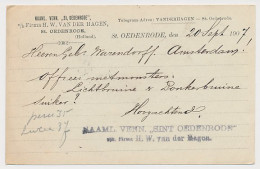 NAAML. VENN. „ST. OEDENRODE",
v/h Firma H. W. VAN DER HAGEN,
ST. OEDENRODE,
(Holland).
Telegram-Adres: VANDERHAGEN — St. Oedenrode.
St. OEDENRODE, den 20 Sept. 1907,
Heeren Gebr. Warendorff Amsterdam!
Offreer met monsters:
Lichtbruine & Donkerbruine
suiker!
Hoogachtend
NAAML. VENN. „SINT OEDENRODE"
v/h. Firma H. W. van der Hagen.